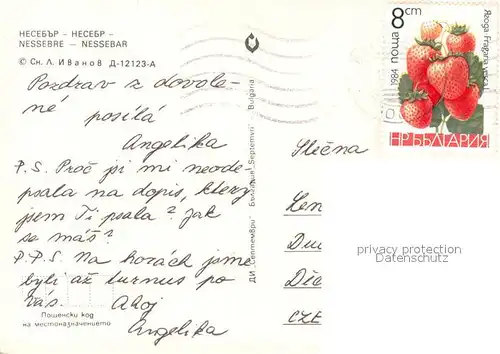 НЕСЕБЪР - НЕСЕБР -
NESSEBRE - NESSEBAR
© Сн. Л. Иванов Д-12123-А
Pozdrav z dovole-
né posílá
Angelika
P.S. Proč jsi mi neode-
psala na dopis, který
jsem Ti psala? Jak
se máš?
P.P.S. Na horách jsme
byli až turnus po
Vás. Ahoj
Angelika
Пощенски код
на местоназначението
ДИ „Септември" България „Septemvri" Bulgaria
8 ст
поща
1984
Ягода Fragaria
НР БЪЛГАРИЯ
Slečna
Len
Du
Dě
CZE
privacy protection
Datenschutz